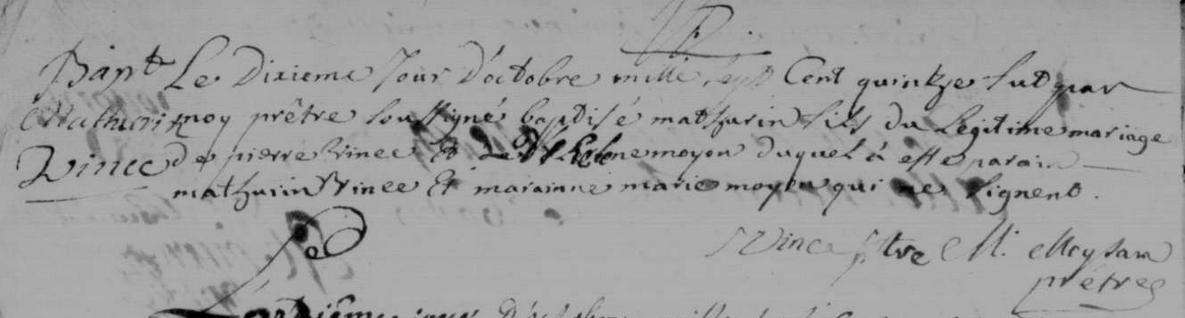 Bapt Le Dixieme Jour D'octobre mille sept Cent quinkze fut par
Mathurin moy prêtre soussigné baptisé mathurin fils du Legitime mariage
Vinee de pierre Vinee Et De helene moyon duquel à esté parain
mathurin Vinee Et marainne marie moyon qui ne signent.
Vinee ptre M. Meysan
prêtre
jour D'octobre